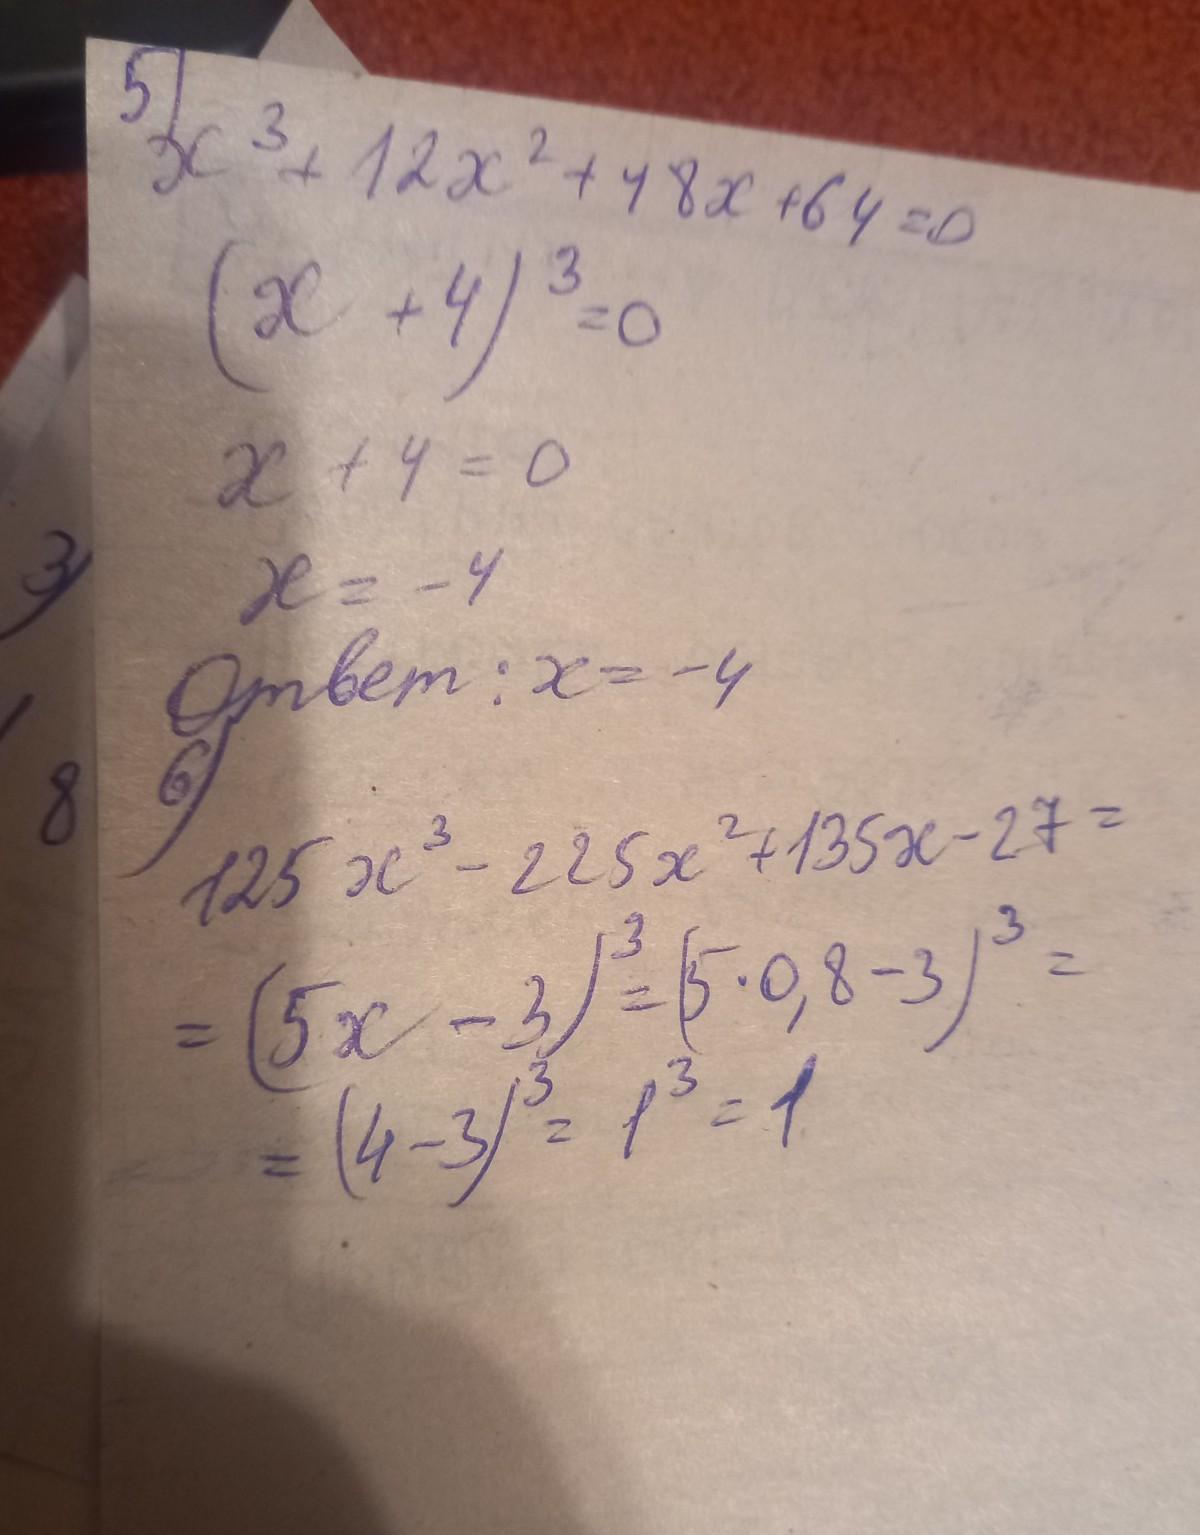 5)
x³ + 12x² + 48x + 64 = 0
(x + 4)³ = 0
x + 4 = 0
x = -4
Ответ: x = -4
6)
125x³ - 225x² + 135x - 27 =
= (5x - 3)³ = (5·0,8 - 3)³ =
= (4 - 3)³ = 1³ = 1
3)
8